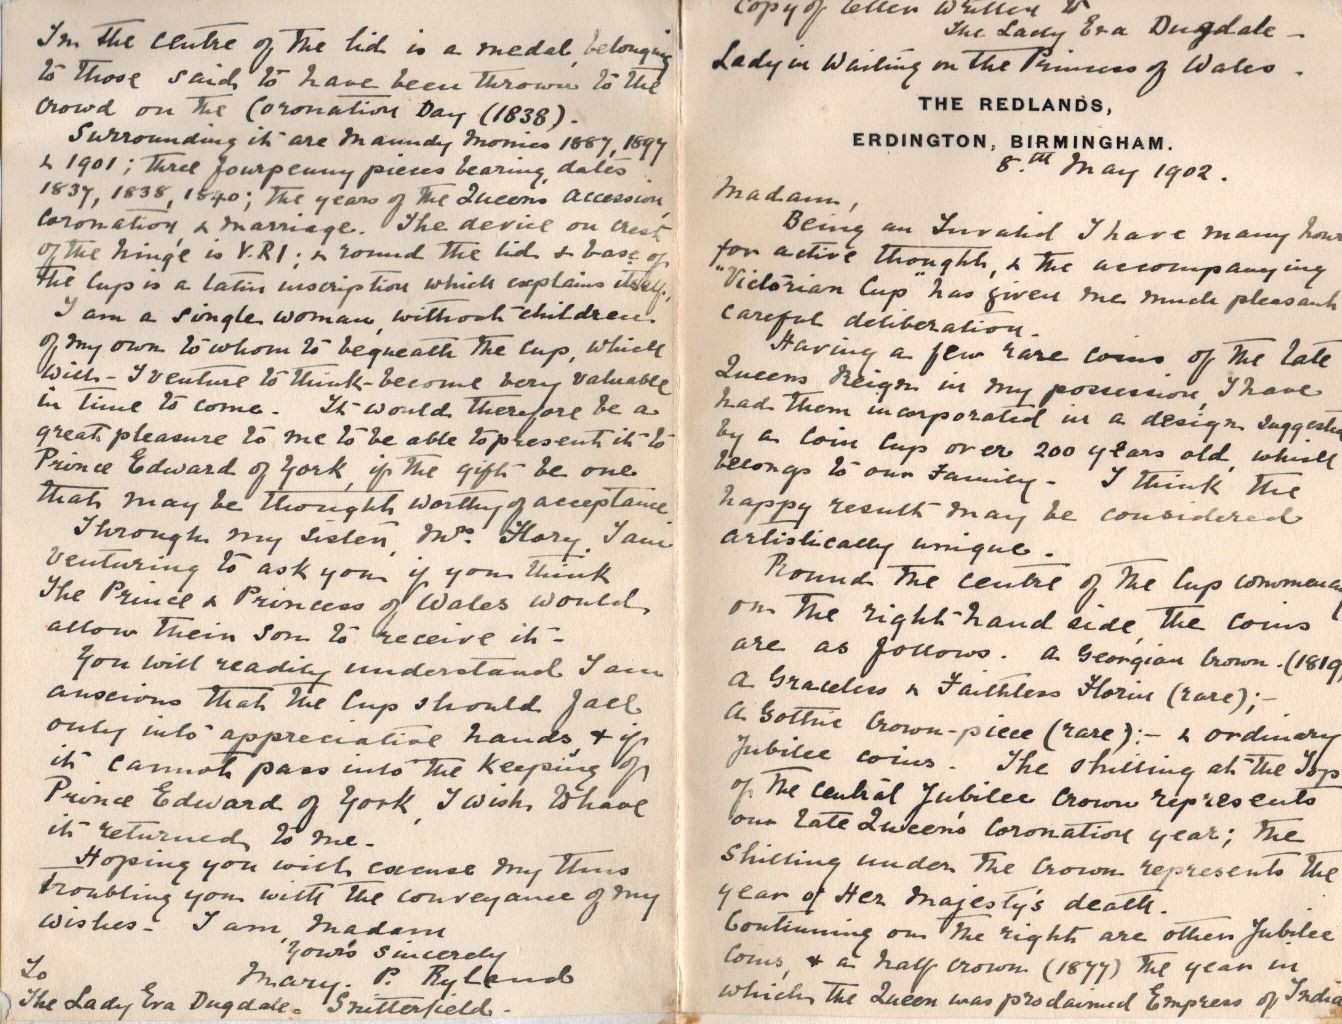 Copy of letter written to
The Lady Eva Dugdale -
Lady in Waiting on the Princess of Wales.
THE REDLANDS,
ERDINGTON, BIRMINGHAM.
8.th May 1902.
Madam,
Being an Invalid I have many hours
for active thought, & the accompanying
"Victorian Cup" has given me much pleasant
careful deliberation.
Having a few rare coins of the late
Queens Reign in my possession, I have
had them incorporated in a design suggested
by a Coin Cup over 200 years old, which
belongs to our Family - I think the
happy result may be considered
artistically unique.
Round the centre of the Cup commencing
on the right-hand side, the Coins
are as follows. A Georgian Crown. (1819)
A Graceless & Faithless Florin (rare);-
A Gothic Crown-piece (rare);- & ordinary
Jubilee coins. The shilling at the Top
of the central Jubilee Crown represents
our late Queen's Coronation year; the
shilling under the Crown represents the
year of Her Majesty's death.
Continuing on the right are other Jubilee
Coins, & a half Crown (1877) the year in
which the Queen was proclaimed Empress of India
In the centre of the lid is a medal, belonging
to those said to have been thrown to the
crowd on the Coronation Day (1838).
Surrounding it are Maundy Monies 1887, 1897
& 1901; three fourpenny pieces bearing dates
1837, 1838, 1840; the years of the Queens Accession,
Coronation, & Marriage. The device on crest
of the hinge is V.R.I; & round the lid & base of
the Cup is a latin inscription which explains itself.
I am a single woman, without children
of my own to whom to bequeath the Cup, which
will - I venture to think - become very valuable
in time to come. It would therefore be a
great pleasure to me to be able to present it to
Prince Edward of York, if the gift be one
that may be thought worthy of acceptance
Through my Sister, Mrs. Flory I am
venturing to ask you if you think
the Prince & Princess of Wales would
allow their Son to receive it -
You will readily understand I am
anxious that the Cup should fall
only into appreciative hands, & if
it cannot pass into the keeping of
Prince Edward of York, I wish to have
it returned to me.
Hoping you will excuse my thus
troubling you with the conveyance of my
wishes - I am, Madam
Yours sincerely
Mary. P. Ryland
To
The Lady Eva Dugdale -